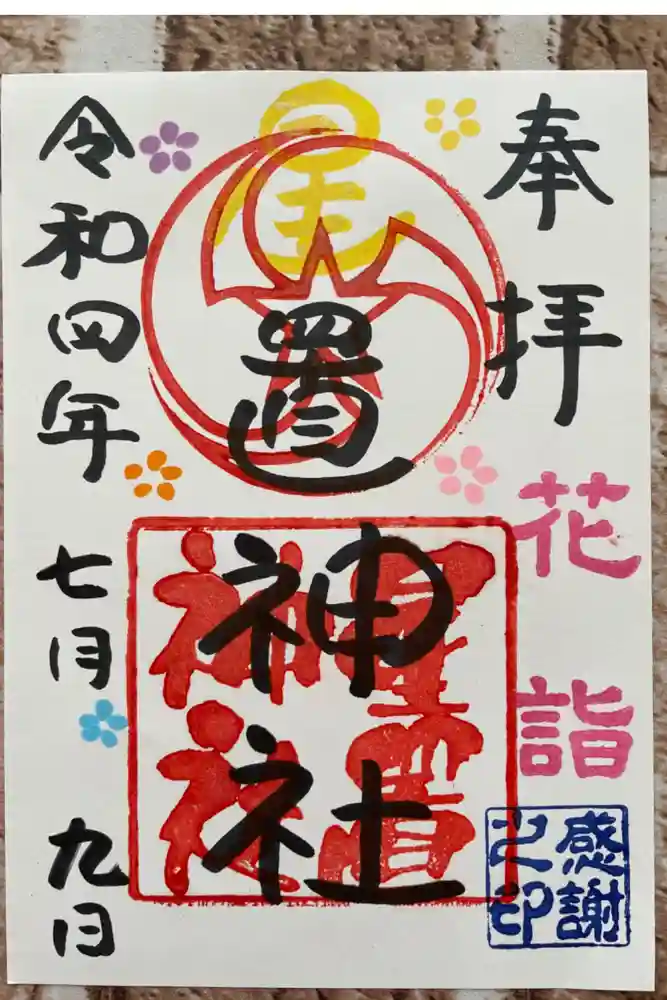 奉拝
花詣
感謝
之印
星置神社
星置
神社
令和四年
七月九日